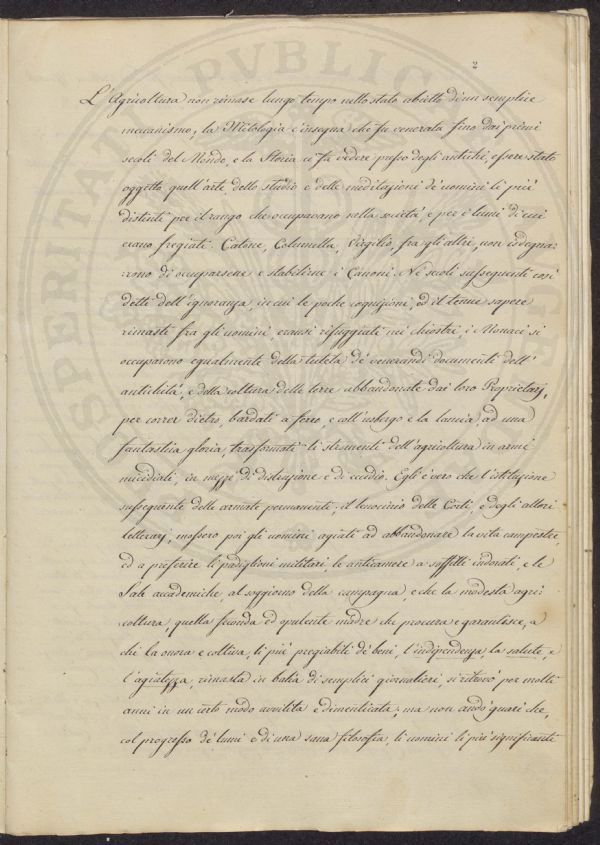 2
L'Agricoltura non rimase lungo tempo nello stato abietto di un semplice
mecanismo, la Mitologia c'insegna che fu venerata fino dai primi
secoli del Mondo, e la Storia ci fa vedere presso degli antichi, essere stato
oggetto quell'arte dello studio e delle meditazioni de' uomini li più
distinti per il rango che occupavano nella società e per i lumi di cui
erano fregiati. Catone, Columella, Virgilio, fra gli altri, non isdegna=
rono di occuparsene e stabilirne i Canoni. Ne' secoli susseguenti così
detti dell'ignoranza, in cui le poche cognizioni, ed il tenue sapere
rimasti fra gli uomini, eransi rifuggiati nei chiostri, i Monaci si
occuparono egualmente della tutela de' venerandi documenti dell'
antichità, e della coltura delle terre abbandonate dai loro Proprietarj,
per correr dietro, bardati a ferro, e coll'usbergo e la lancia, ad una
fantastica gloria, trasformati li stromenti dell'agricoltura in armi
micidiali, in mezzi di distruzione e di eccidio. Egli è vero che l'istituzione
susseguente delle armate permanenti, il lenocinio delle Corti, e degli allori
letterarj, mossero poi gli uomini agiati ad abbandonare la vita campestre
ed a preferire li padiglioni militari, le anticamere a soffitti indorati, e le
Sale accademiche, al soggiorno della campagna, e che la modesta agri
coltura, quella feconda ed opulente madre che procura e garantisce, a
chi la onora e coltiva, li più pregiabili de' beni, l'indipendenza, la salute, e
l'agiatezza, rimasta in balìa di semplici giornalieri, si ritrovò per molti
anni in un certo modo avvilita e dimenticata; ma non andò guari che,
col progresso de' lumi e di una sana filosofia, li uomini li più significanti
PROSPERITATI PVBLICAE